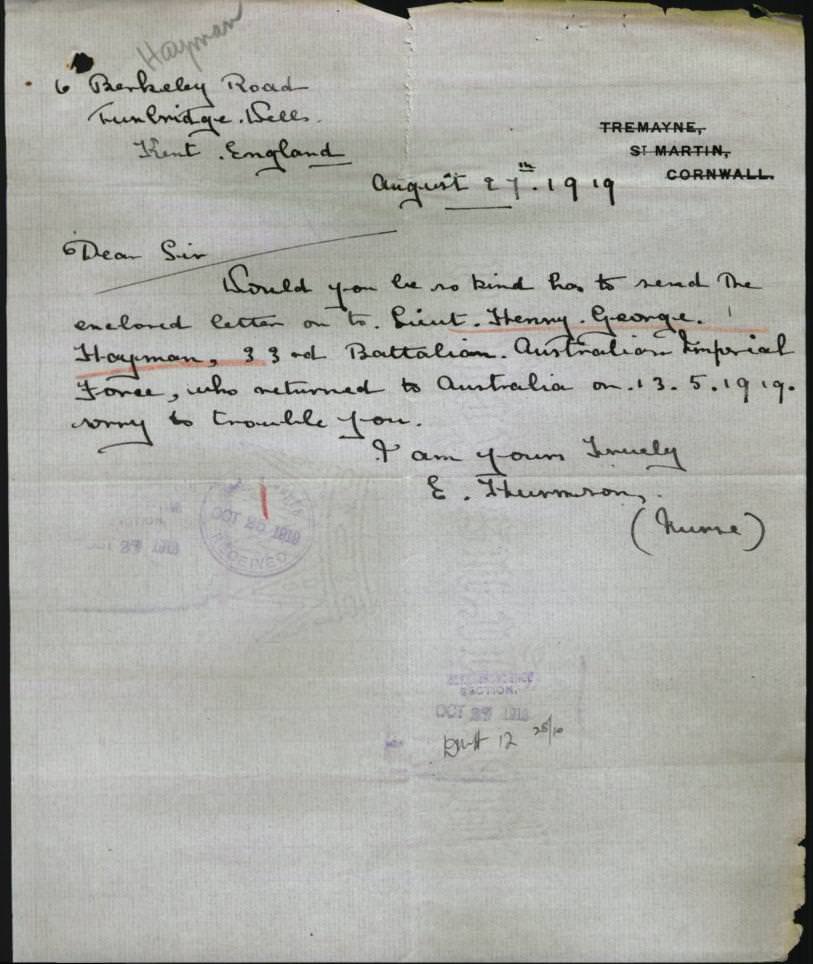 Hayman
6 Berkeley Road
Tunbridge. Wells.
Kent. England
TREMAYNE,
ST MARTIN,
CORNWALL.
August 27th. 1919
Dear Sir
Would you be so kind has to send the
enclosed letter on to. Lieut. Henry. George.
Hayman, 33rd Battalian. Australian Imperial
Force, who returned to Australia on. 13. 5. 1919.
sorry to trouble you.
I am yours Truely
E.
(Nurse)
OCT 1919
RECEIVED
SECTION.
OCT 29 1919
12 28/10